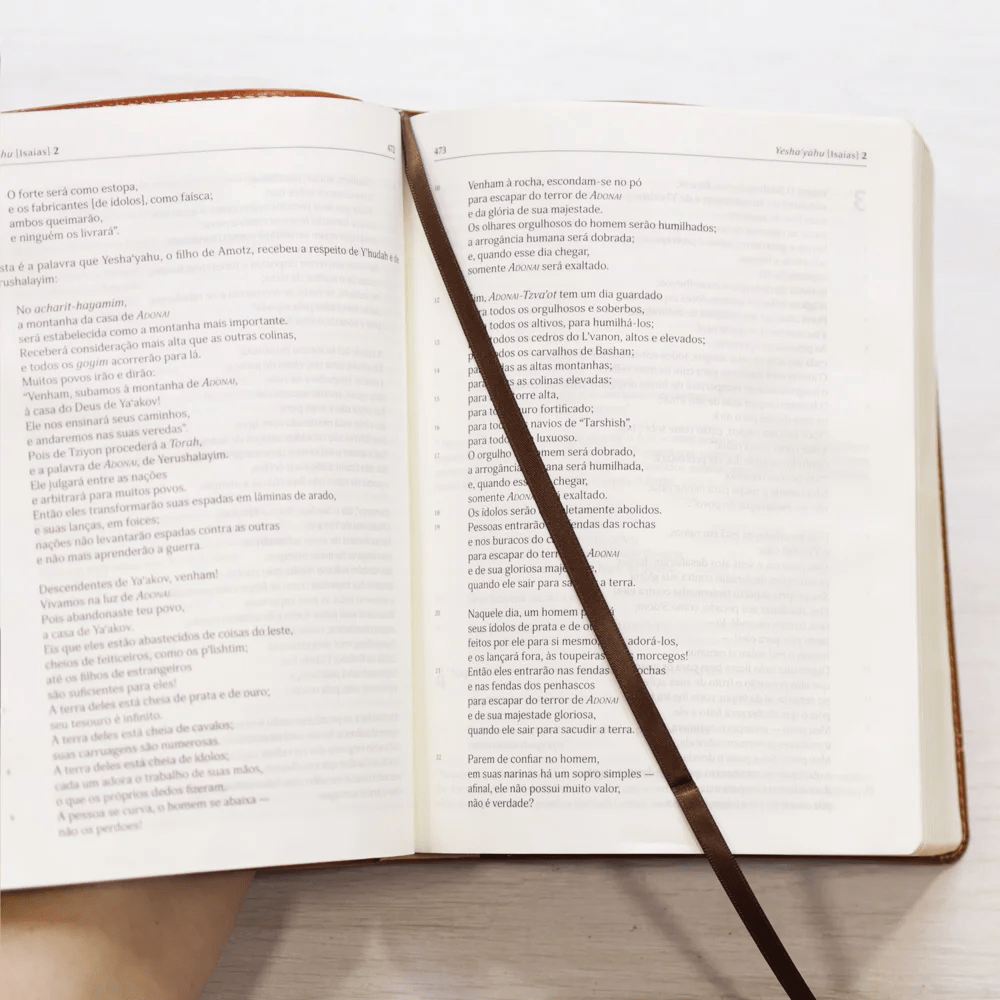 hu [Isaías] 2
472
O forte será como estopa,
e os fabricantes [de ídolos], como faísca;
ambos queimarão,
e ninguém os livrará”.
sta é a palavra que Yesha‘yahu, o filho de Amotz, recebeu a respeito de Y’hudah e de
rushalayim:
No acharit-hayamim,
a montanha da casa de ADONAI
será estabelecida como a montanha mais importante.
Receberá consideração mais alta que as outras colinas,
e todos os goyim acorrerão para lá.
Muitos povos irão e dirão:
“Venham, subamos à montanha de ADONAI,
à casa do Deus de Ya‘akov!
Ele nos ensinará seus caminhos,
e andaremos nas suas veredas”.
Pois de Tziyon procederá a Torah,
e a palavra de ADONAI, de Yerushalayim.
Ele julgará entre as nações
e arbitrará para muitos povos.
Então eles transformarão suas espadas em lâminas de arado,
e suas lanças, em foices;
nações não levantarão espadas contra as outras
e não mais aprenderão a guerra.
Descendentes de Ya‘akov, venham!
Vivamos na luz de ADONAI
Pois abandonaste teu povo,
a casa de Ya‘akov.
Eis que eles estão abastecidos de coisas do leste,
cheios de feiticeiros, como os p’lishtim;
até os filhos de estrangeiros
são suficientes para eles!
A terra deles está cheia de prata e de ouro;
seu tesouro é infinito.
A terra deles está cheia de cavalos;
suas carruagens são numerosas.
8 A terra deles está cheia de ídolos;
cada um adora o trabalho de suas mãos,
o que os próprios dedos fizeram.
9 A pessoa se curva, o homem se abaixa —
não os perdoes!
473
Yesha‘yahu [Isaías] 2
10 Venham à rocha, escondam-se no pó
para escapar do terror de ADONAI
e da glória de sua majestade.
Os olhares orgulhosos do homem serão humilhados;
a arrogância humana será dobrada;
e, quando esse dia chegar,
somente ADONAI será exaltado.
12 im, ADONAI-Tzva’ot tem um dia guardado
ra todos os orgulhosos e soberbos,
todos os altivos, para humilhá-los;
13 todos os cedros do L’vanon, altos e elevados;
pa odos os carvalhos de Bashan;
14 pa as as altas montanhas;
pa as as colinas elevadas;
15 para orre alta,
para to uro fortificado;
16 para to navios de “Tarshish”,
para todo luxuoso.
17 O orgulho mem será dobrado,
a arrogância na será humilhada,
e, quando ess chegar,
somente ADON exaltado.
18 Os ídolos serão letamente abolidos.
19 Pessoas entrarão endas das rochas
e nos buracos do
para escapar do terr ADONAI
e de sua gloriosa maje e,
quando ele sair para sa a terra.
20 Naquele dia, um homem p á
seus ídolos de prata e de o
feitos por ele para si mesmo adorá-los,
e os lançará fora, às toupeiras s morcegos!
21 Então eles entrarão nas fendas rochas
e nas fendas dos penhascos
para escapar do terror de ADONAI
e de sua majestade gloriosa,
quando ele sair para sacudir a terra.
22 Parem de confiar no homem,
em suas narinas há um sopro simples —
afinal, ele não possui muito valor,
não é verdade?